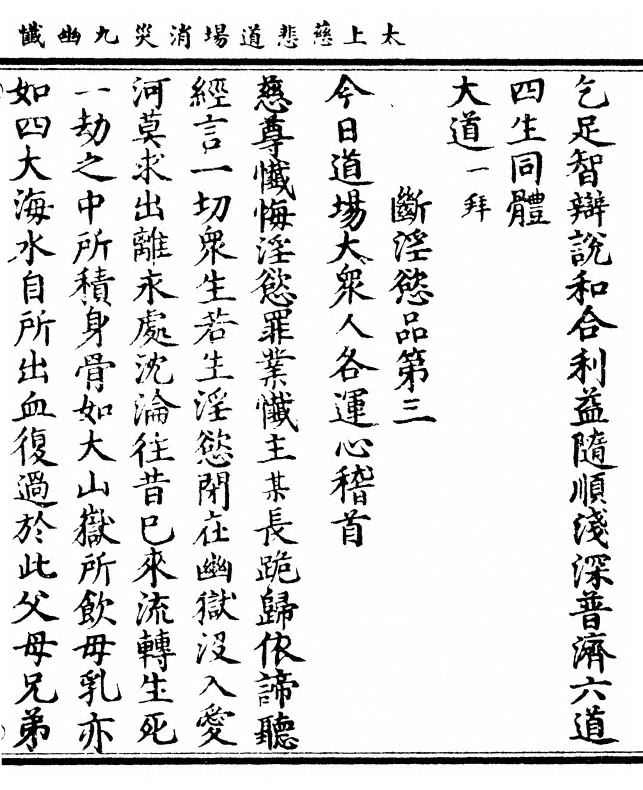 太上慈悲道場消災九幽懺
乞足智辯說和合利益隨順淺深普濟六道
四生同體
大道一拜
斷淫慾品第三
今日道場大衆人各運心稽首
慈尊懺悔淫慾罪業懺主某長跪歸依諦聽
經言一切衆生若生淫慾閉在幽獄沒入愛
河莫求出離永處沈淪往昔巳來流轉生死
一劫之中所積身骨如大山嶽所飲母乳亦
如四大海水自所出血復過於此父母兄弟